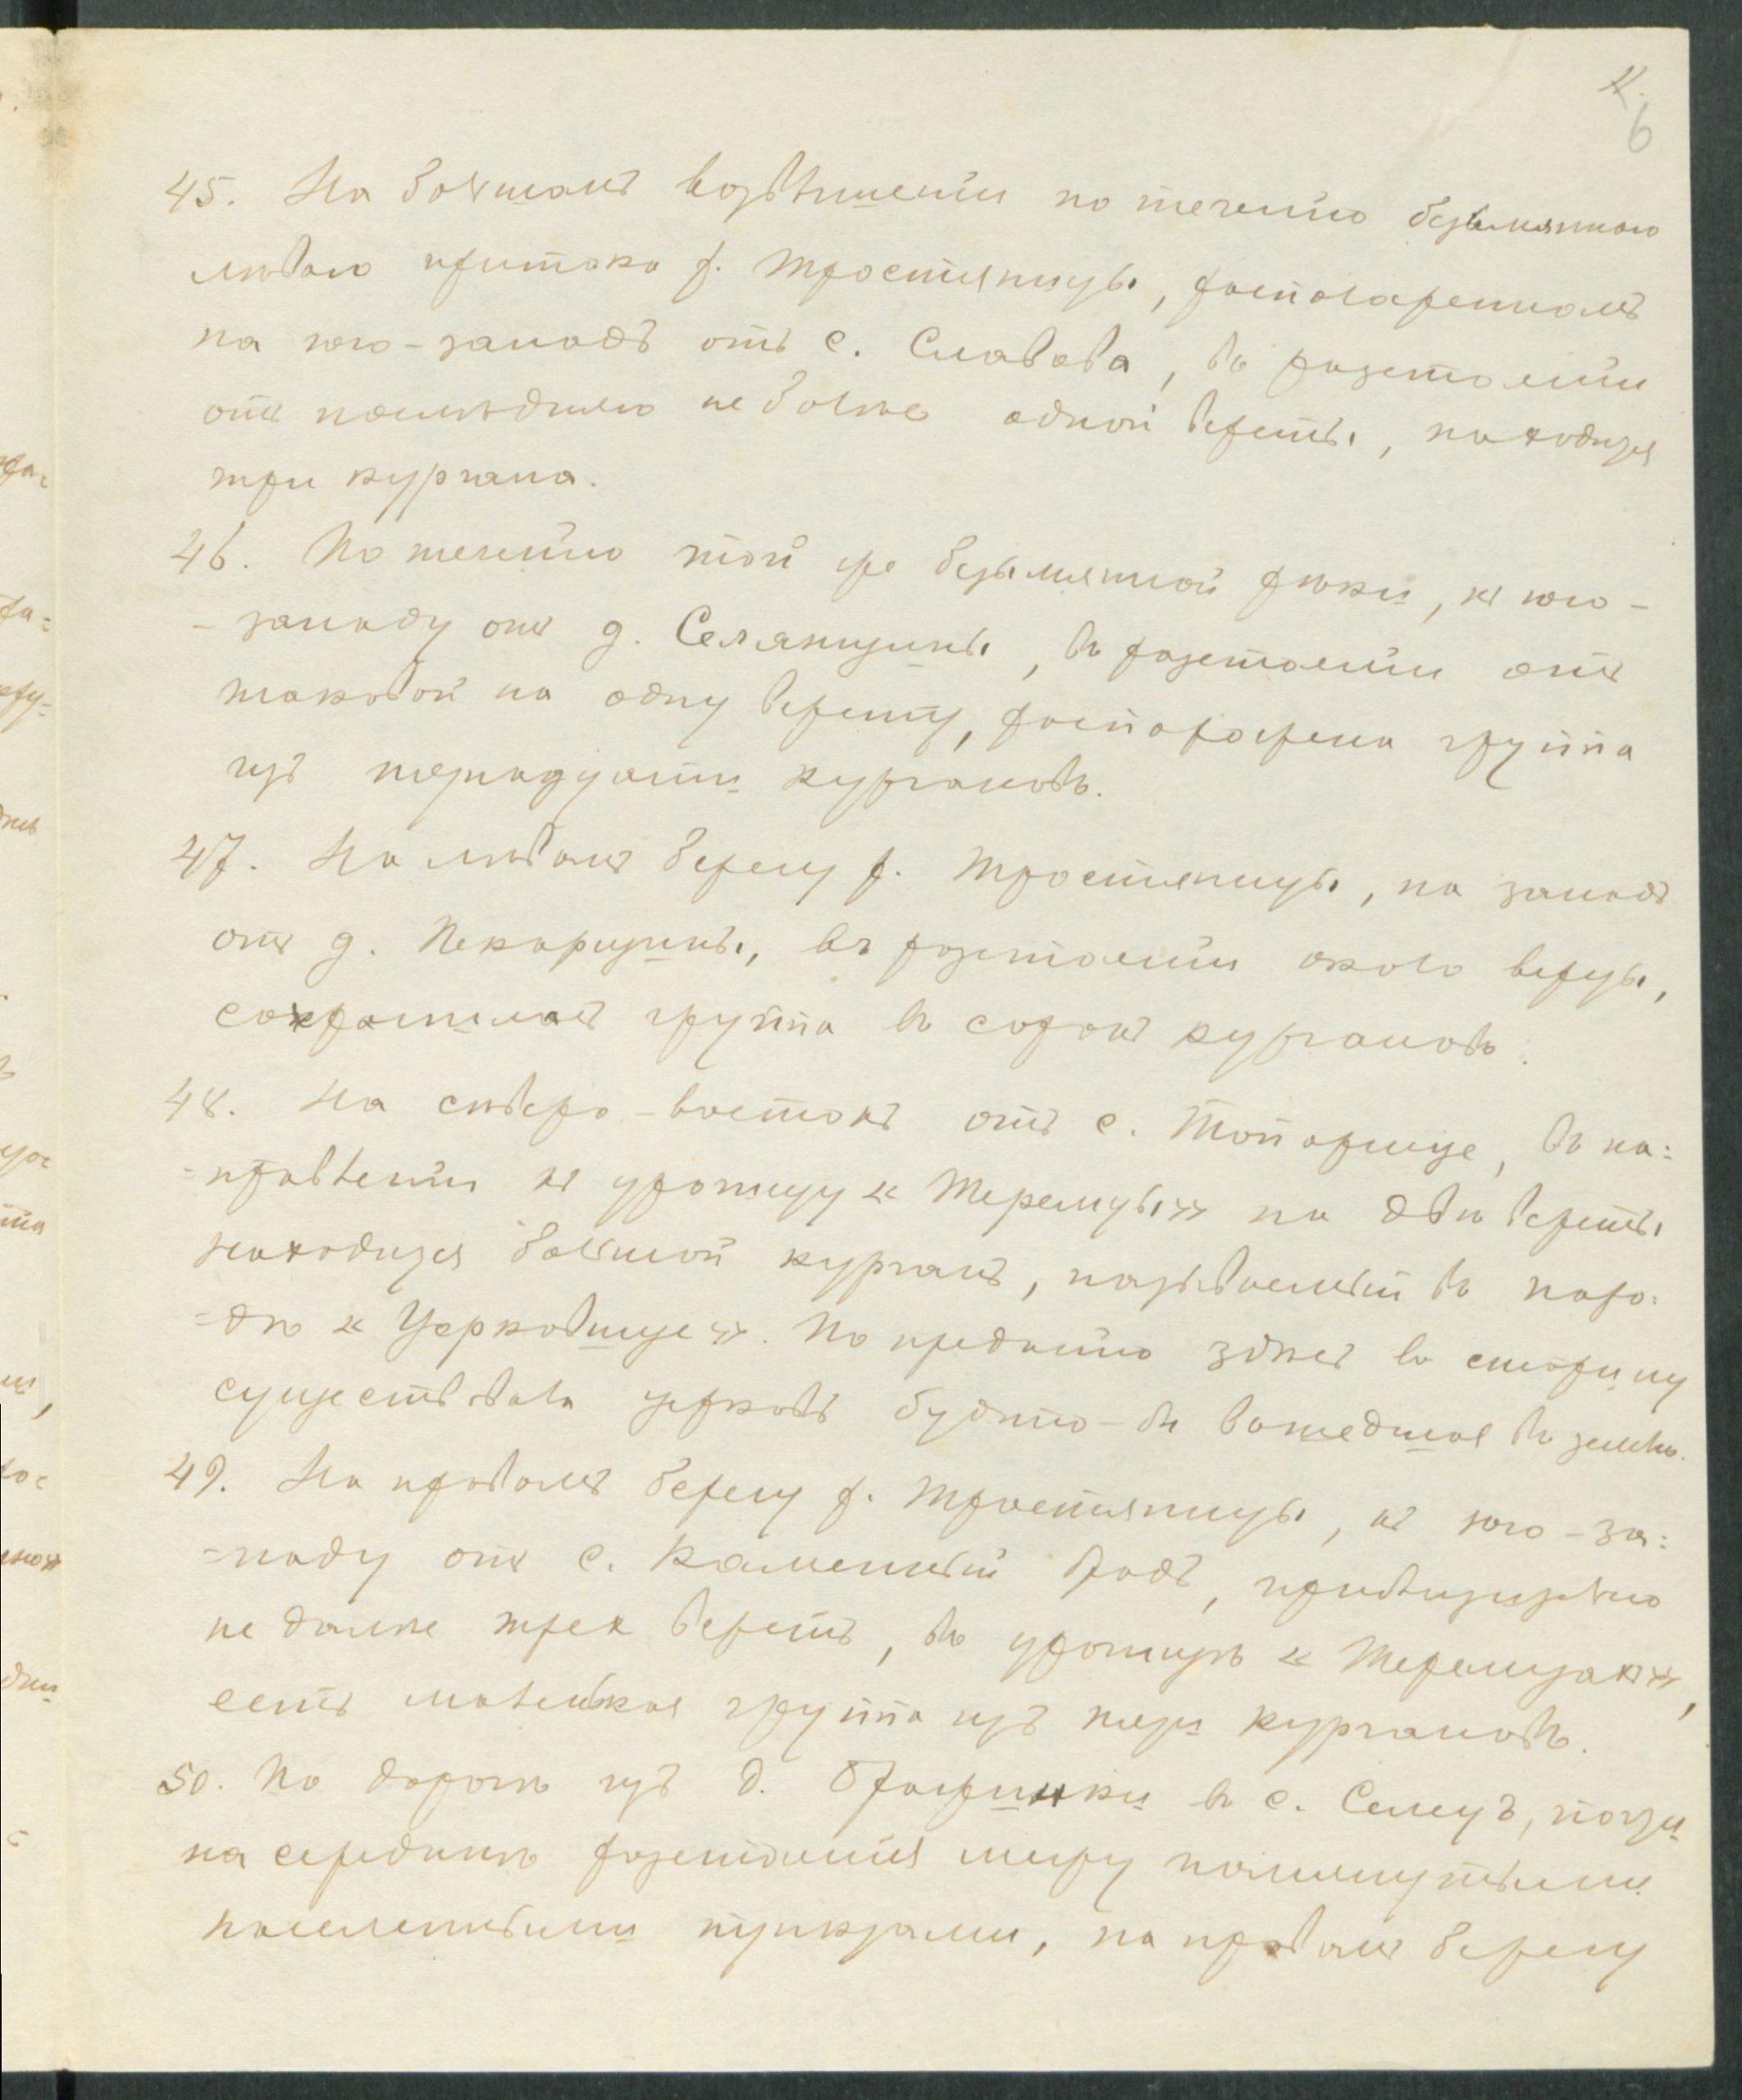 6
45. На большомъ возвышеніи по теченію безымяннаго
лѣваго притока р. Тростяницы, расположенномъ
на юго-западъ отъ с. Славова, въ разстояніи
отъ послѣдняго не болѣе одной версты, находится
три кургана.
46. По теченію той же безымянной рѣки, къ юго-
-западу отъ д. Селянщины, въ разстояніи отъ
таковой на одну версту, расположена группа
изъ тринадцати курганов.
47. На лѣвомъ берегу р. Тростяницы, на западъ
отъ д. Пекарщины, въ разстояніи около версты,
сохранилась группа въ сорокъ кургановъ.
48. На сѣверо-востокъ отъ с. Топорище, въ на=
=правленіи къ урочищу «Теремцы» на двѣ версты
находится большой курганъ, называемый въ наро=
=дѣ «Церковище». По преданію здѣсь въ старину
существовала церковь будто-бы вошедшая въ землю.
49. На правомъ берегу р. Тростяницы, къ юго-за=
=паду отъ с. Каменный Бродъ, приблизительно
не далѣе трех верстъ, въ урочищѣ «Теремцахъ»,
есть маленькая группа изъ кургановъ.
50. По дорогѣ изъ д. Бражинки въ с. Селецъ, почти
на серединѣ разстоянія между помянутыми
населенными пунктами, на правомъ берегу